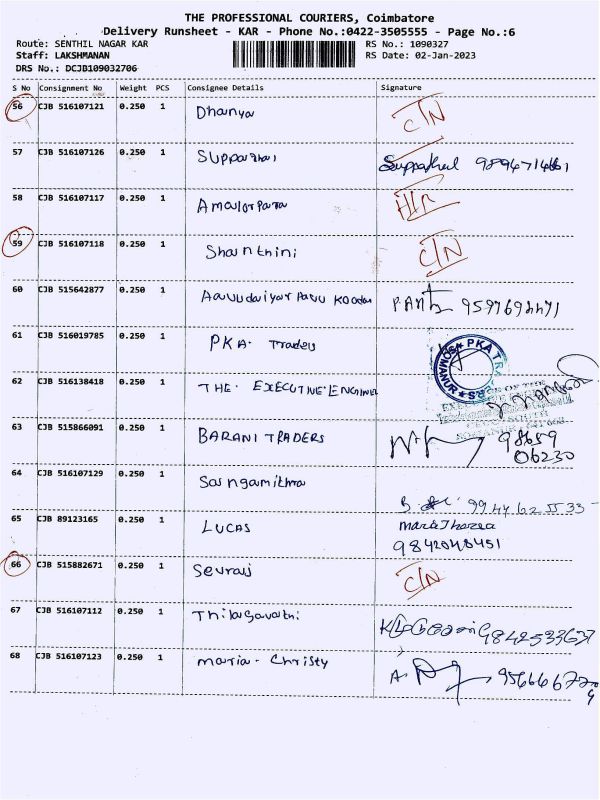 THE PROFESSIONAL COURIERS, Coimbatore
Delivery Runsheet - KAR - Phone No.:0422-3505555 - Page No.:6
Route: SENTHIL NAGAR KAR RS No.: 1090327
Staff: LAKSHMANAN RS Date: 02-Jan-2023
DRS No.: DCJB109032706
S No Consignment No Weight PCS Consignee Details Signature
56 CJB 516107121 0.250 1 Dhanya C/N
57 CJB 516107126 0.250 1 Suppathal 9894714661
58 CJB 516107117 0.250 1 Amalorpava
59 CJB 516107118 0.250 1 Shanthini C/N
60 CJB 515642877 0.250 1 9597694471
61 CJB 516019785 0.250 1 PKA Traders PKA TRADERS SOMANUR
62 CJB 516138418 0.250 1 THE. EXECUTIVE ENGINEER
63 CJB 515866091 0.250 1 BARANI TRADERS 98659
06230
64 CJB 516107129 0.250 1 Sangamithra
B 9944625533
65 CJB 89123165 0.250 1 LUCAS Maria Tharea
9842048451
66 CJB 515882671 0.250 1 Sevraj C/N
67 CJB 516107112 0.250 1 Thilagavathi
68 CJB 516107123 0.250 1 Maria - Christy A.